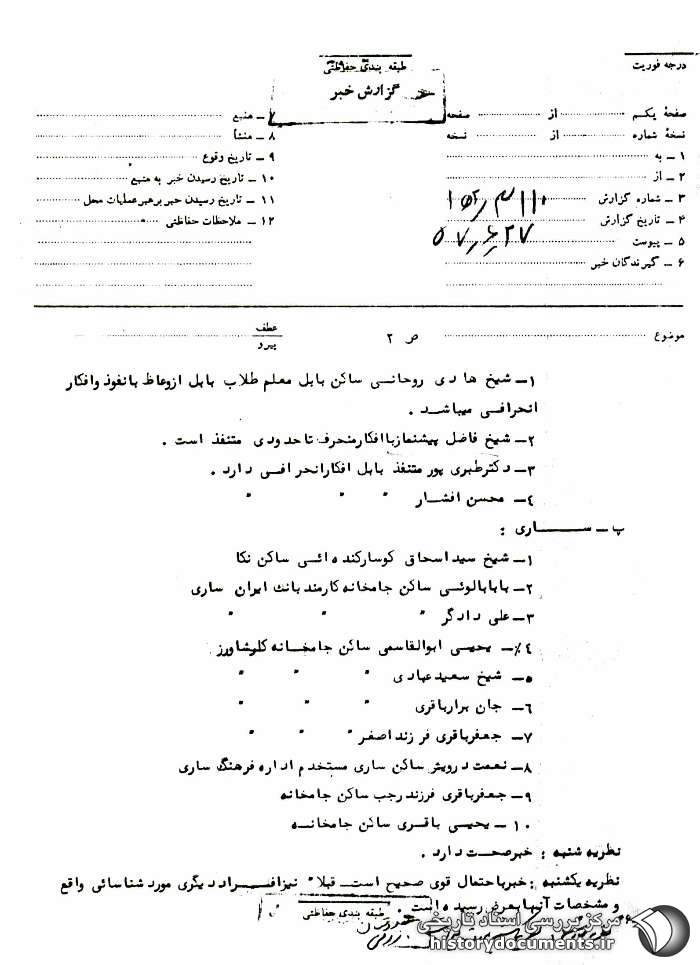 درجه فوریت
طبقه بندی حفاظتی
گزارش خبر
صفحهٔ یکم ............ از ............ صفحه
نسخهٔ شماره ............ از ............ نسخه
۱ ـ به
۲ ـ از
۳ ـ شماره گزارش
۴ ـ تاریخ گزارش ۵۷٫۶٫۲۷
۵ ـ پیوست
۶ ـ گیرندگان خبر
۷ ـ منبع
۸ ـ منشأ
۹ ـ تاریخ وقوع
۱۰ ـ تاریخ رسیدن خبر به منبع
۱۱ ـ تاریخ رسیدن خبر برهبر عملیات محل
۱۲ ـ ملاحظات حفاظتی
موضوع ............ ص ۲ ............ عطف
پیرو
۱ـ شیخ هادی روحانی ساکن بابل معلم طلاب بابل ازوعاظ بانفوذ وافکار
انحرافی میباشد .
۲ـ شیخ فاضل پیشنماز باافکارمنحرف تاحدودی متنفذ است .
۳ـ دکترطبری پور متنفذ بابل افکارانحرافی دارد .
۴ـ محسن افشار " " "
پ ـ ســـاری :
۱ـ شیخ سیداسحاق کوسارکنده ائی ساکن نکا
۲ـ بابابالوئی ساکن جامخانه کارمند بانک ایران ساری
۳ـ علی دادگر " " "
۴ـ یحیی ابوالقاسمی ساکن جامخانه کشاورز
۵ـ شیخ سعیدعبادی " " "
۶ـ جان برارباقری " " "
۷ـ جعفرباقری فرزند اصغر " " "
۸ـ نعمت درویش ساکن ساری مستخدم اداره فرهنگ ساری
۹ـ جعفرباقری فرزند رجب ساکن جامخانه
۱۰ـ یحیی باقری ساکن جامخانه
نظریه شنبه : خبرصحت دارد .
نظریه یکشنبه : خبرباحتمال قوی صحیح است ـ قبلا" نیزافـراد دیگری مورد شناسائی واقع
و مشخصات آنهابعرض رسیده است .
طبقه بندی حفاظتی
مرکز بررسی اسناد تاریخی
historydocuments.ir